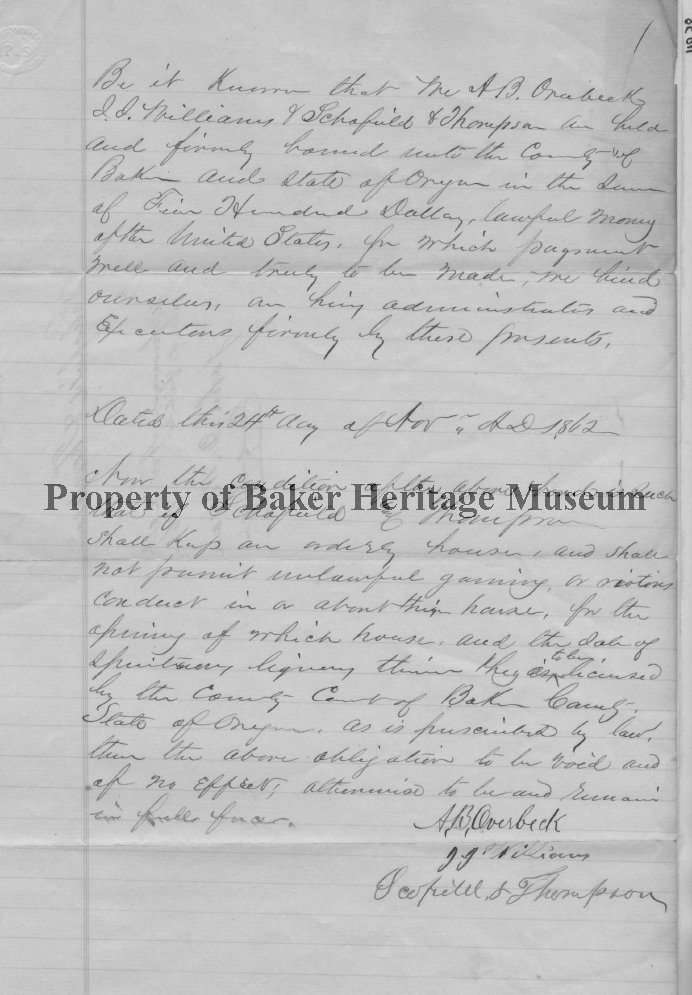 Be it Known that We A. B. Overbeck
J. J. Williams & Schofield & Thompson an held
and firmly bound unto the County of
Baker and State of Oregon in the Sum
of Five Hundred Dollars, lawful money
of the United States, for which payment
well and truly to be made, we bind
ourselves, our heirs administrators and
Executors firmly by these presents.
Dated this 24th day of Nov " A D 1862
Now the condition of the above bond is such
that if Schofield & Thompson
Property of Baker Heritage Museum
Shall Keep an orderly house, and shall
not permit unlawful gaming, or riotous
conduct in or about their house, for the
opening of which house, and the Sale of
Spirituous liquors therein they is to be licensed
by the County Court of Baker County,
State of Oregon, as is prescribed by law,
then the above obligation to be void and
of no Effect, otherwise to be and remain
in full force.
A. B. Overbeck
J J Williams
Scofield & Thompson